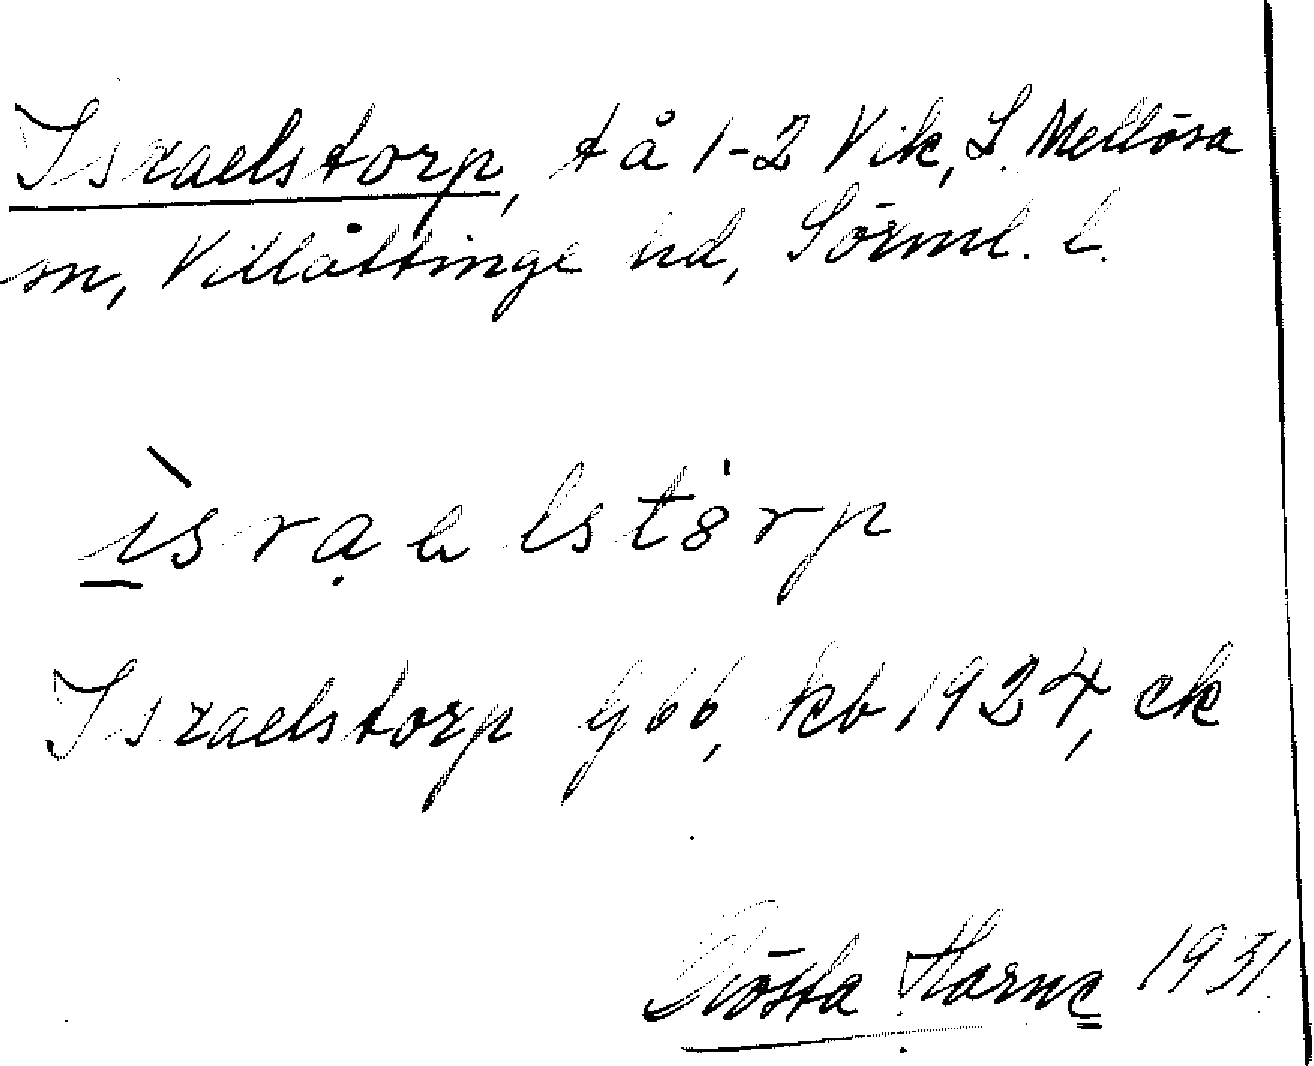 Israelstorp, tå 1-2 Vik, L. Mellösa
sn, Villåttinge hd, Sörml. l.
ìsraelstorp
Israelstorp kb 1924, ek
Gösta 1931